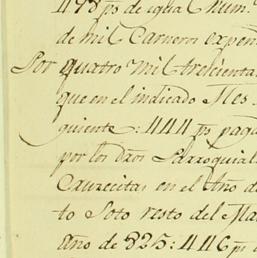 498 ps de igual num.
de mil Carneros expen
Por quatro mil trescienta
que en el indicado Mes
guiente: 444 ps pag
por los dros Parroquial
en el Año d
to Soto resto del
año de 825: 446 ps